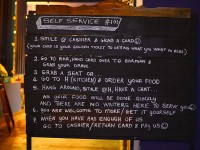 SELF SERVICE #101
1. SMILE @ CASHIER & GRAB A CARD
(YOUR CARD IS YOUR GOLDEN TICKET TO GETTING WHAT YOU WANT IN HERE)
2. GO TO BAR, HAND CARD OVER TO BARMAN &
GRAB YOUR DRINK
3. GRAB A SEAT OR...
4. GO TO H (KITCHEN) & ORDER YOUR FOOD
5. HANG AROUND, SMILE @H, HAVE A CHAT...
AS YOUR FOOD WILL BE DONE QUICKLY
AND THERE ARE NO WAITERS HERE TO SERVE YOU
6. YOU ARE WELCOME TO MORE / GET IT YOURSELF
7. WHEN YOU HAVE HAD ENOUGH OF US
GO TO CASHIER/RETURN CARD & PAY US